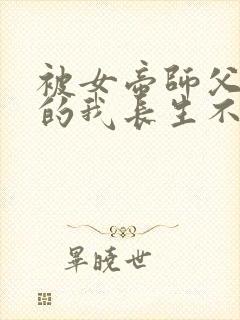 被女帝師父
的我長生不
畢曉世